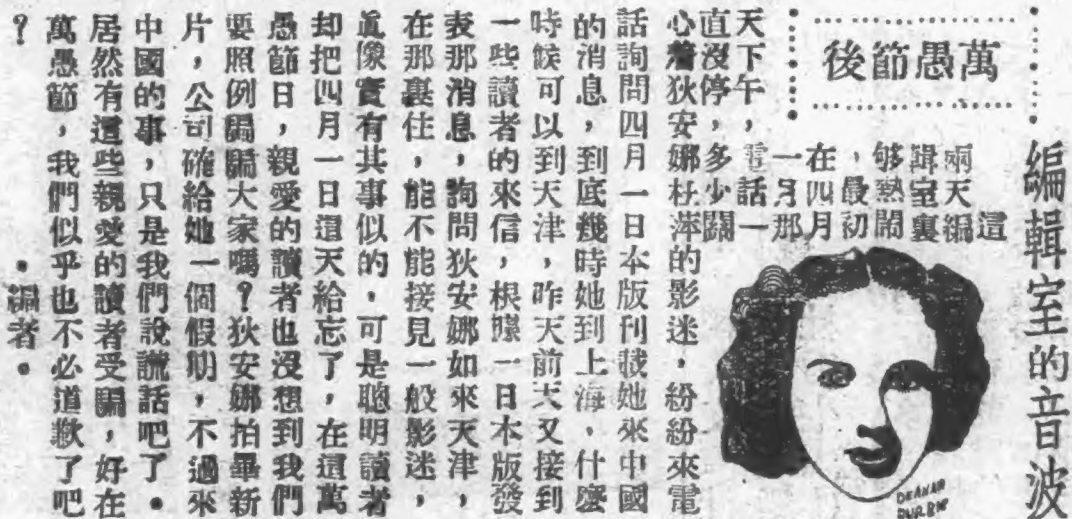 編輯室的音波
萬愚節後
這
兩天編
輯室裏
够熱鬧
，最初
在四月
一月那
天下午，電話一
直沒停，多少關
心着狄安娜杜萍的影迷，紛紛來電
話詢問四月一日本版刊載她來中國
的消息，到底幾時她到上海，什麼
時候可以到天津，昨天前天又接到
一些讀者的來信，根據一日本版發
表那消息，詢問狄安娜如來天津，
在那裏住，能不能接見一般影迷，
眞像實有其事似的，可是聰明讀者
却把四月一日這天給忘了，在這萬
愚節日，親愛的讀者也沒想到我們
要照例騙騙大家嗎？狄安娜拍畢新
片，公司確給她一個假期，不過來
中國的事，只是我們說謊話吧了。
居然有這些親愛的讀者受騙，好在
萬愚節，我們似乎也不必道歉了吧
？
・編者・
DEANAR
DURBIN